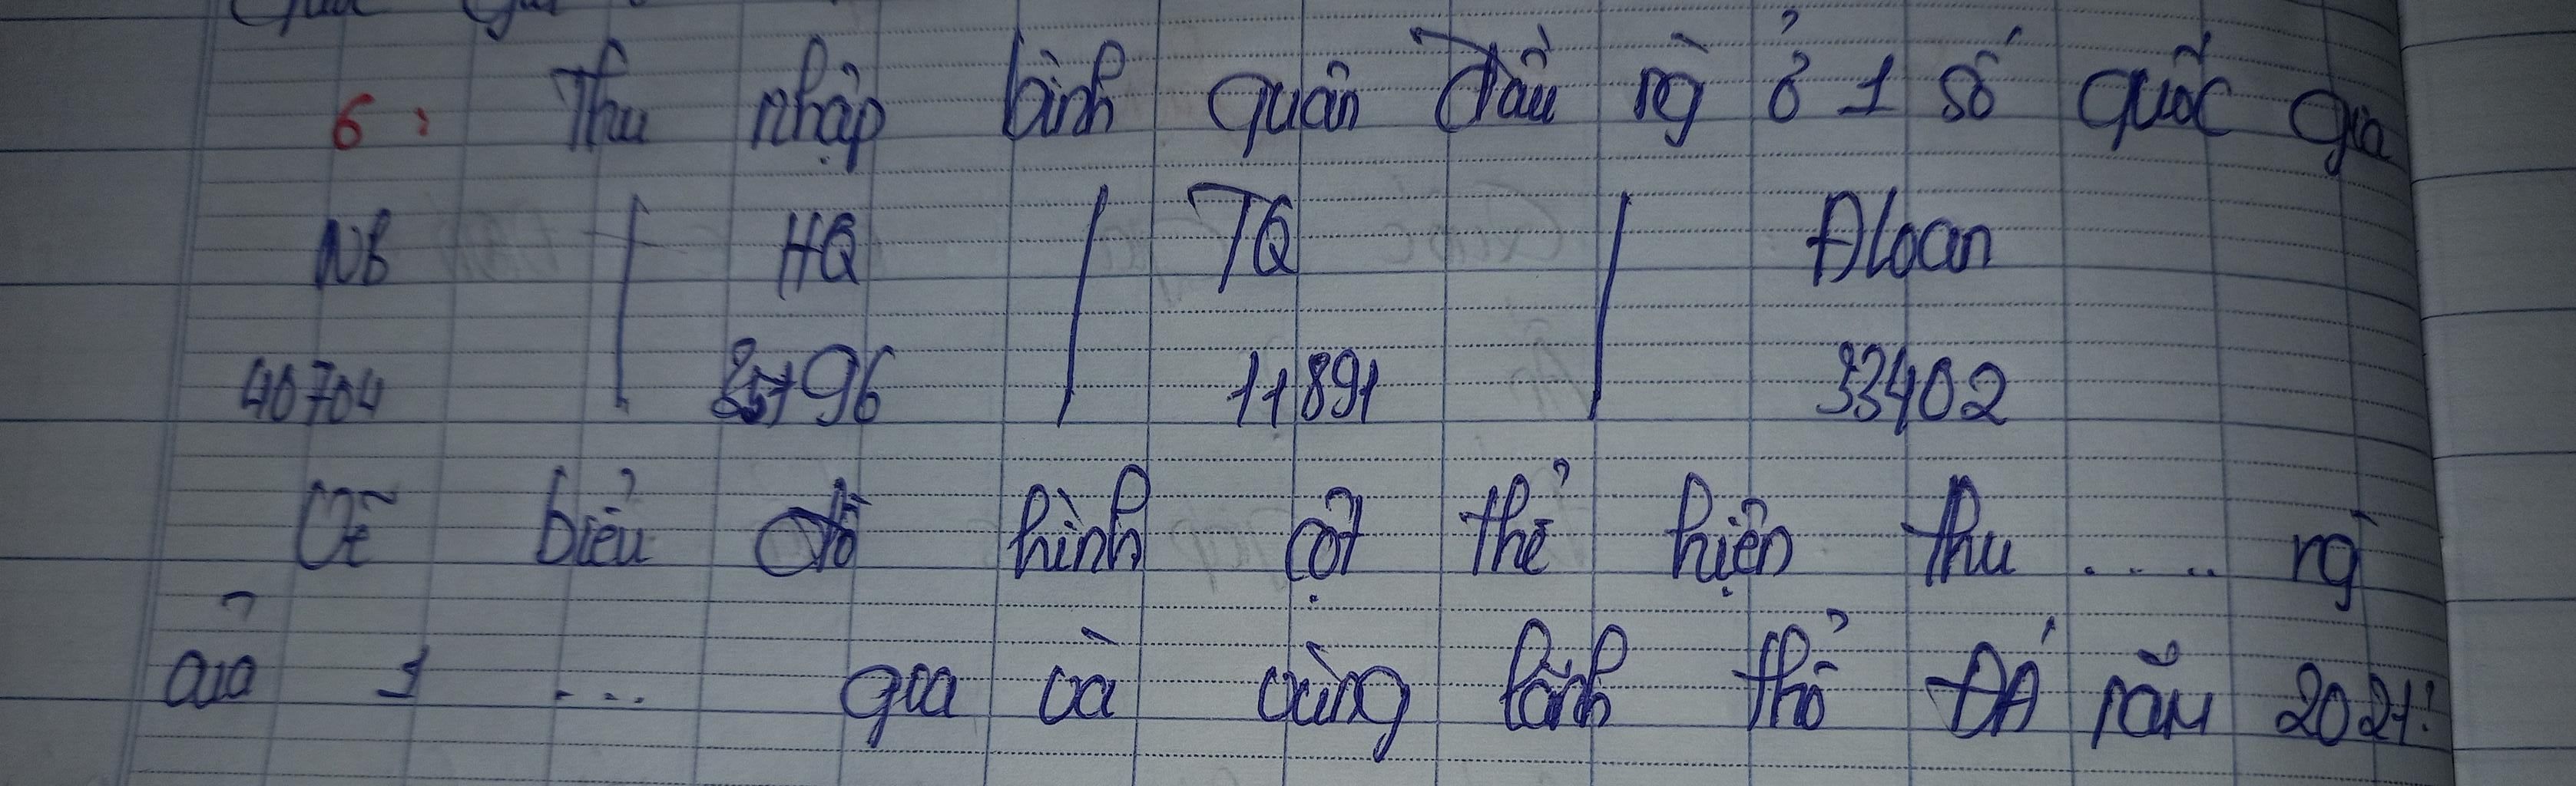 6: Thu nhập bình quân đầu ng ở 1 số quốc gia
NB | HQ | TQ | Đloan
40704 | 35196 | 11891 | 33402
Vẽ biểu đồ hình cột thể hiện thu ..... ng
của 1 .... gia và vùng lãnh thổ ĐÁ năm 2021!